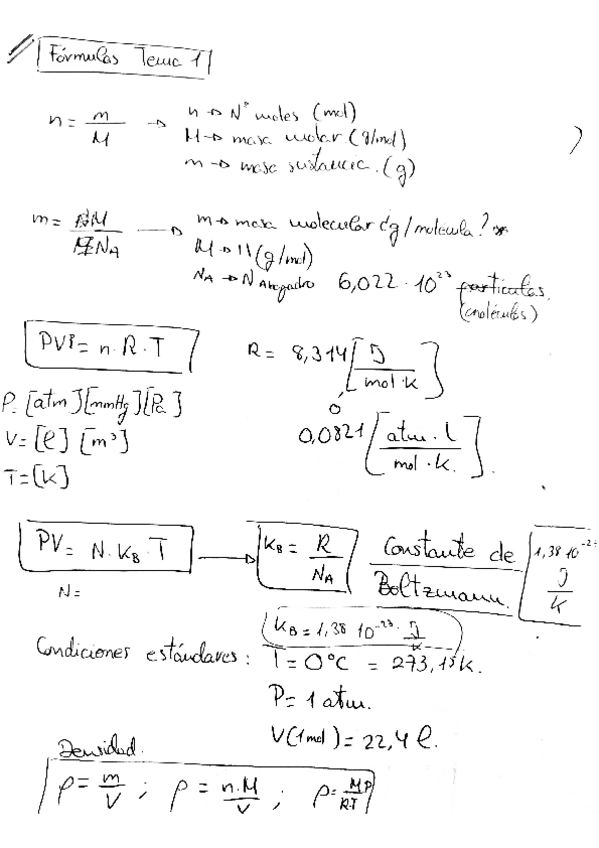 Fórmulas Tema 1
n = m/M → n → Nº moles (mol)
M → masa molar (g/mol)
m → masa sustancia. (g)
m = M/NA → m → masa molecular ¿g/molécula?
M → 11 (g/mol)
NA → N Avogadro 6,022 · 10²³ partículas.
(moléculas)
PV = n · R · T
R = 8,314 [J / mol·K]
P = [atm] [mmHg] [Pa]
o
V = [l] [m³]
0,0821 [atm · l / mol · K].
T = [K]
PV = N · KB · T → KB = R/NA Constante de Boltzmann. 1,38 10⁻²³ J/K
N =
KB = 1,38 10⁻²³ · J/K
Condiciones estándares: T = 0°C = 273,15 K.
P = 1 atm.
V(1 mol) = 22,4 l.
Densidad.
ρ = m/V ; ρ = n.M/V ; ρ = MP/RT